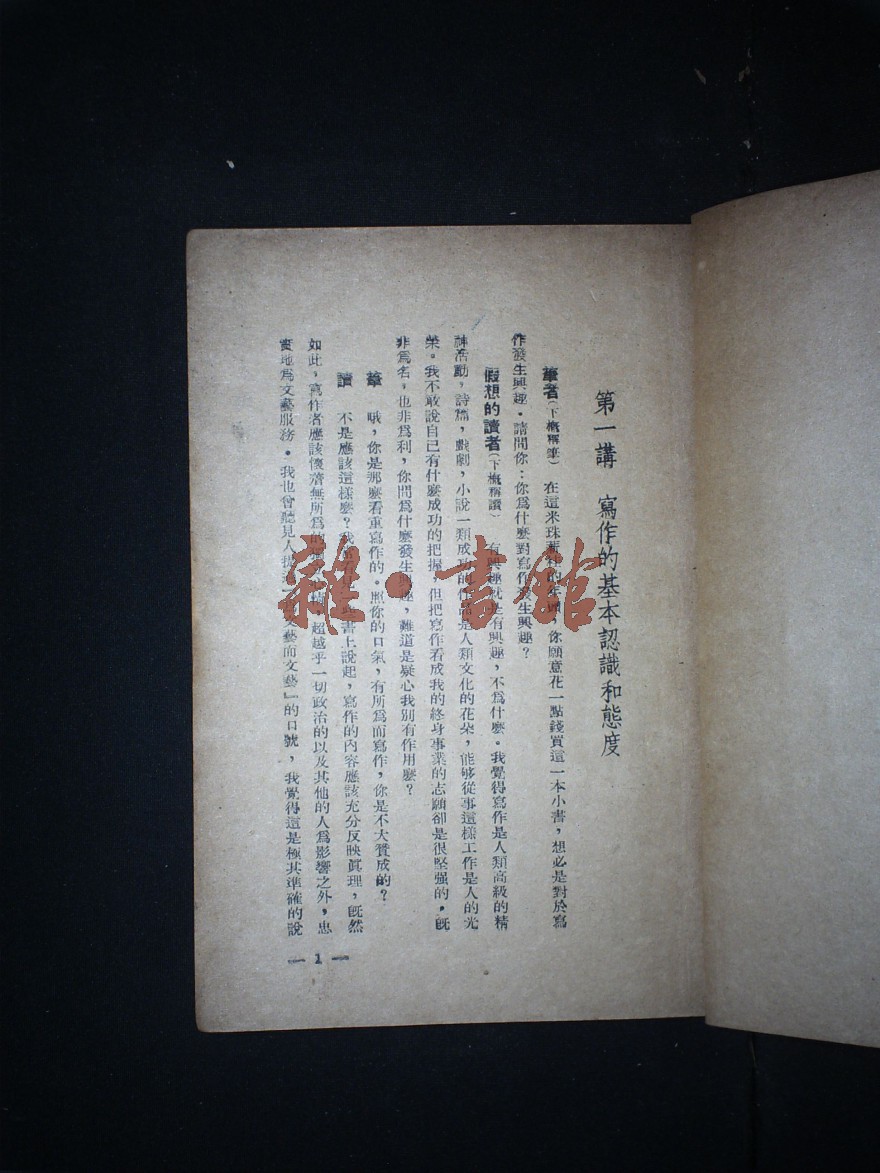 第一講 寫作的基本認識和態度
筆者（下概稱筆） 在這米珠薪桂的年頭，你願意花一點錢買這一本小書，想必是對於寫
作發生興趣。請問你：你爲什麼對寫作發生興趣？
假想的讀者（下概稱讀） 有興趣就是有興趣，不爲什麼。我覺得寫作是人類高級的精
神活動，詩篇，戲劇，小說一類成功的作品是人類文化的花朵，能够從事這樣工作是人的光
榮。我不敢說自己有什麼成功的把握，但把寫作看成我的終身事業的志願卻是很堅强的。旣
非爲名，也非爲利，你問爲什麼發生興趣，難道是疑心我別有作用麼？
筆 哦，你是那麼看重寫作的。照你的口氣，有所爲而寫作，你是不大贊成的？
讀 不是應該這樣麼？我書上說起，寫作的內容應該充分反映眞理，旣然
如此，寫作者應該懷着無所爲的超越乎一切政治的以及其他的人爲影響之外，忠
實地爲文藝服務。我也曾聽見人文藝而文藝』的口號，我覺得這是極其準確的說
— 1 —
雜·書館